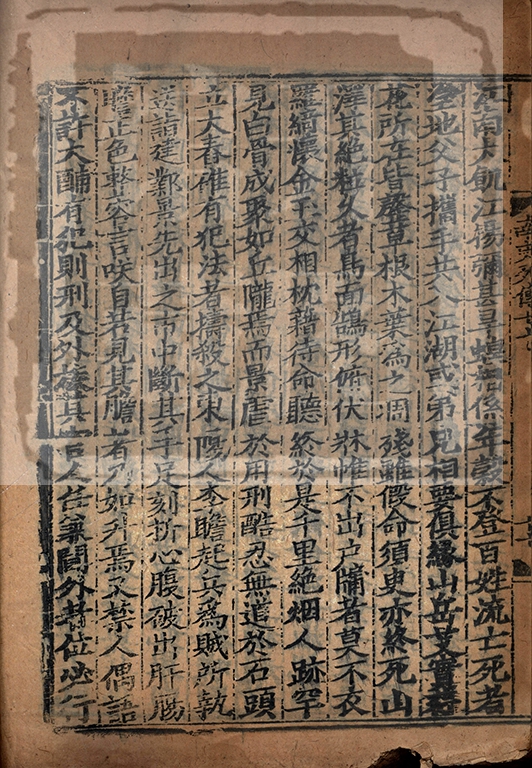 江南大飢江揚彌甚旱蝗相係年穀不登百姓流亡死者
塗地父子攜手共入江湖或弟兄相要俱緣山岳芰實荇
花所在皆罄草根木葉為之凋殘雖假命須臾亦終死山
澤其絕粒久者鳥面鵠形俯伏牀帷不出戶牖者莫不衣
羅綺懷金玉交相枕藉待命聽終於是千里絕烟人跡罕
見白骨成聚如丘隴焉而景虐於用刑酷忍無道於石頭
立大舂碓有犯法者擣殺之東陽人李瞻起兵為賊所執
送詣建鄴景先出之市中斷其手足刻析心腹破出肝腸
瞻正色整容言咲自若見其膽者乃如升焉又禁人偶語
不許大酺有犯則刑及外族其官人任兼閫外者位必行